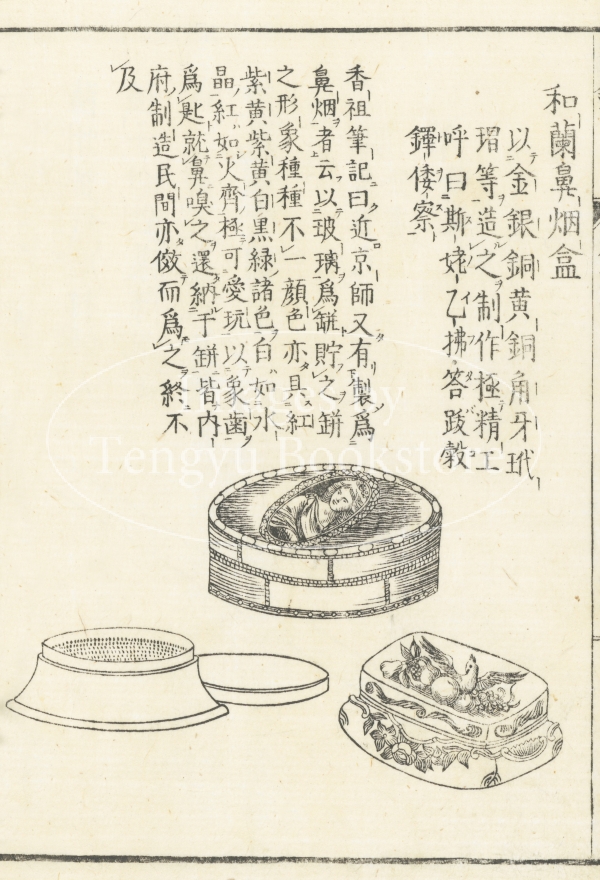 和蘭鼻烟盒
以金銀銅黄銅角牙玳
瑁等造之制作極精工
呼曰斯姥乙拂荅跋穀
鐸倭察
香祖筆記曰近京師又有製爲
鼻烟者云以玻璃爲缾貯之缾
之形象種種不一顔色亦具紅
紫黄紫黄白黒緑諸色白如水
晶紅如火齊極可愛玩以象齒
爲匙就鼻嗅之還納于缾皆内
府制造民間亦倣而爲之終不
及
Tengyu Bookstore